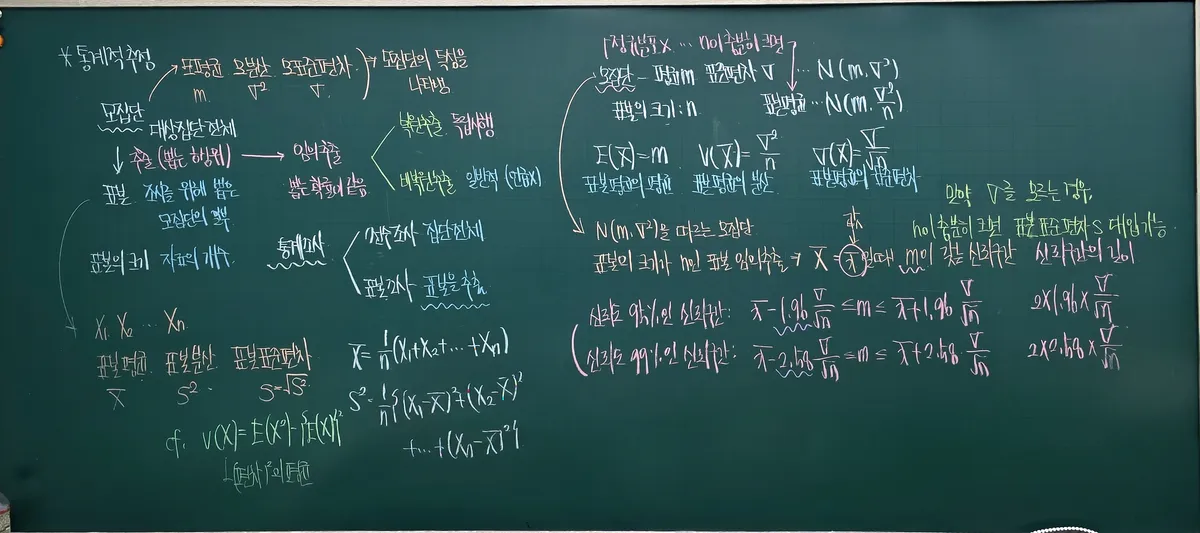 * 통계적 추정
모평균 모분산 모표준편차 → 모집단의 특성을 나타냄
m σ² σ
모집단
대상집단 전체
↓ 추출 (뽑는 행위) → 임의추출
뽑는 확률이 같음
복원추출 독립시행
비복원추출 일반적 (언급X)
표본 조사를 위해 뽑은
모집단의 일부
표본의 크기 자료의 개수
통계조사
전수조사 집단 전체
표본조사 표본을 추출
X₁ X₂ … Xn
표본평균 표본분산 표본표준편차
X̄ S² S=√S²
X̄ = 1/n (X₁+X₂+…+Xn)
S² = 1/n {(X₁-X̄)²+(X₂-X̄)²
+…+(Xn-X̄)²}
cf. V(X)=E(X²)-{E(X)}²
(편차)²의 평균
정규분포X … n이 충분히 크면
모집단 - 평균 m 표준편차 σ … N(m, σ²)
표본의 크기 : n 표본평균 … N(m, σ²/n)
E(X̄)=m V(X̄)=σ²/n σ(X̄)=σ/√n
표본평균의 평균 표본평균의 분산 표본평균의 표준편차
만약 σ를 모르는 경우,
n이 충분히 크면 표본표준편차 S 대입 가능
N(m, σ²)을 따르는 모집단
표본의 크기가 n인 표본 임의추출 → X̄ = x̄ 일때 m이 갖는 신뢰구간 신뢰구간의 길이
신뢰도 95%인 신뢰구간: x̄-1.96 σ/√n ≤ m ≤ x̄+1.96 σ/√n 2×1.96×σ/√n
신뢰도 99%인 신뢰구간: x̄-2.58 σ/√n ≤ m ≤ x̄+2.58 σ/√n 2×2.58×σ/√n